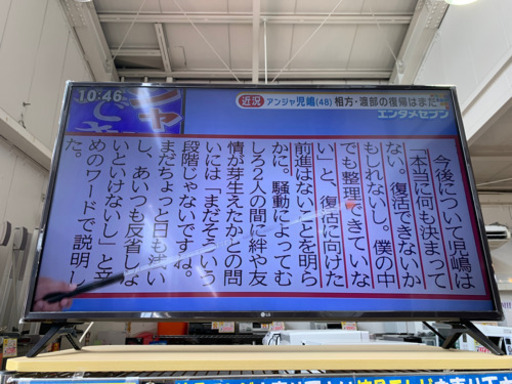 10:46
近況 アンジャ児嶋(48) 相方・渡部の復帰はまだ?
エンタメセブン
今後について児嶋は
「本当に何も決まって
ない。復活できないか
もしれないし。僕の中
でも整理できていな
い」と、復活に向けた
前進はないことを明ら
かに。騒動によってむ
しろ2人の間に絆や友
情が芽生えたかとの問
いには「まだそういう
段階じゃないですね。
まだちょっと日も浅い
し、あいつも反省しな
いといけないし」と辛
めのワードで説明し
た。
LG